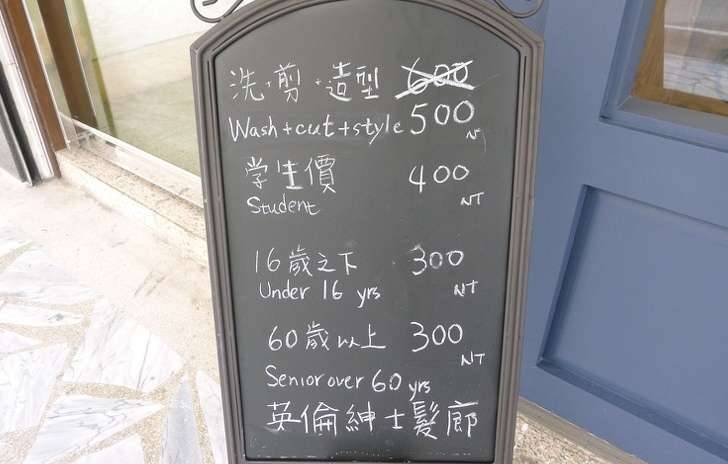 洗·剪·造型 600
Wash+cut+style 500 N
学生價 400
Student NT
16歲之下 300
Under 16 yrs NT
60歲以上 300
NT
Senior over 60 yrs
英倫紳士髮廊